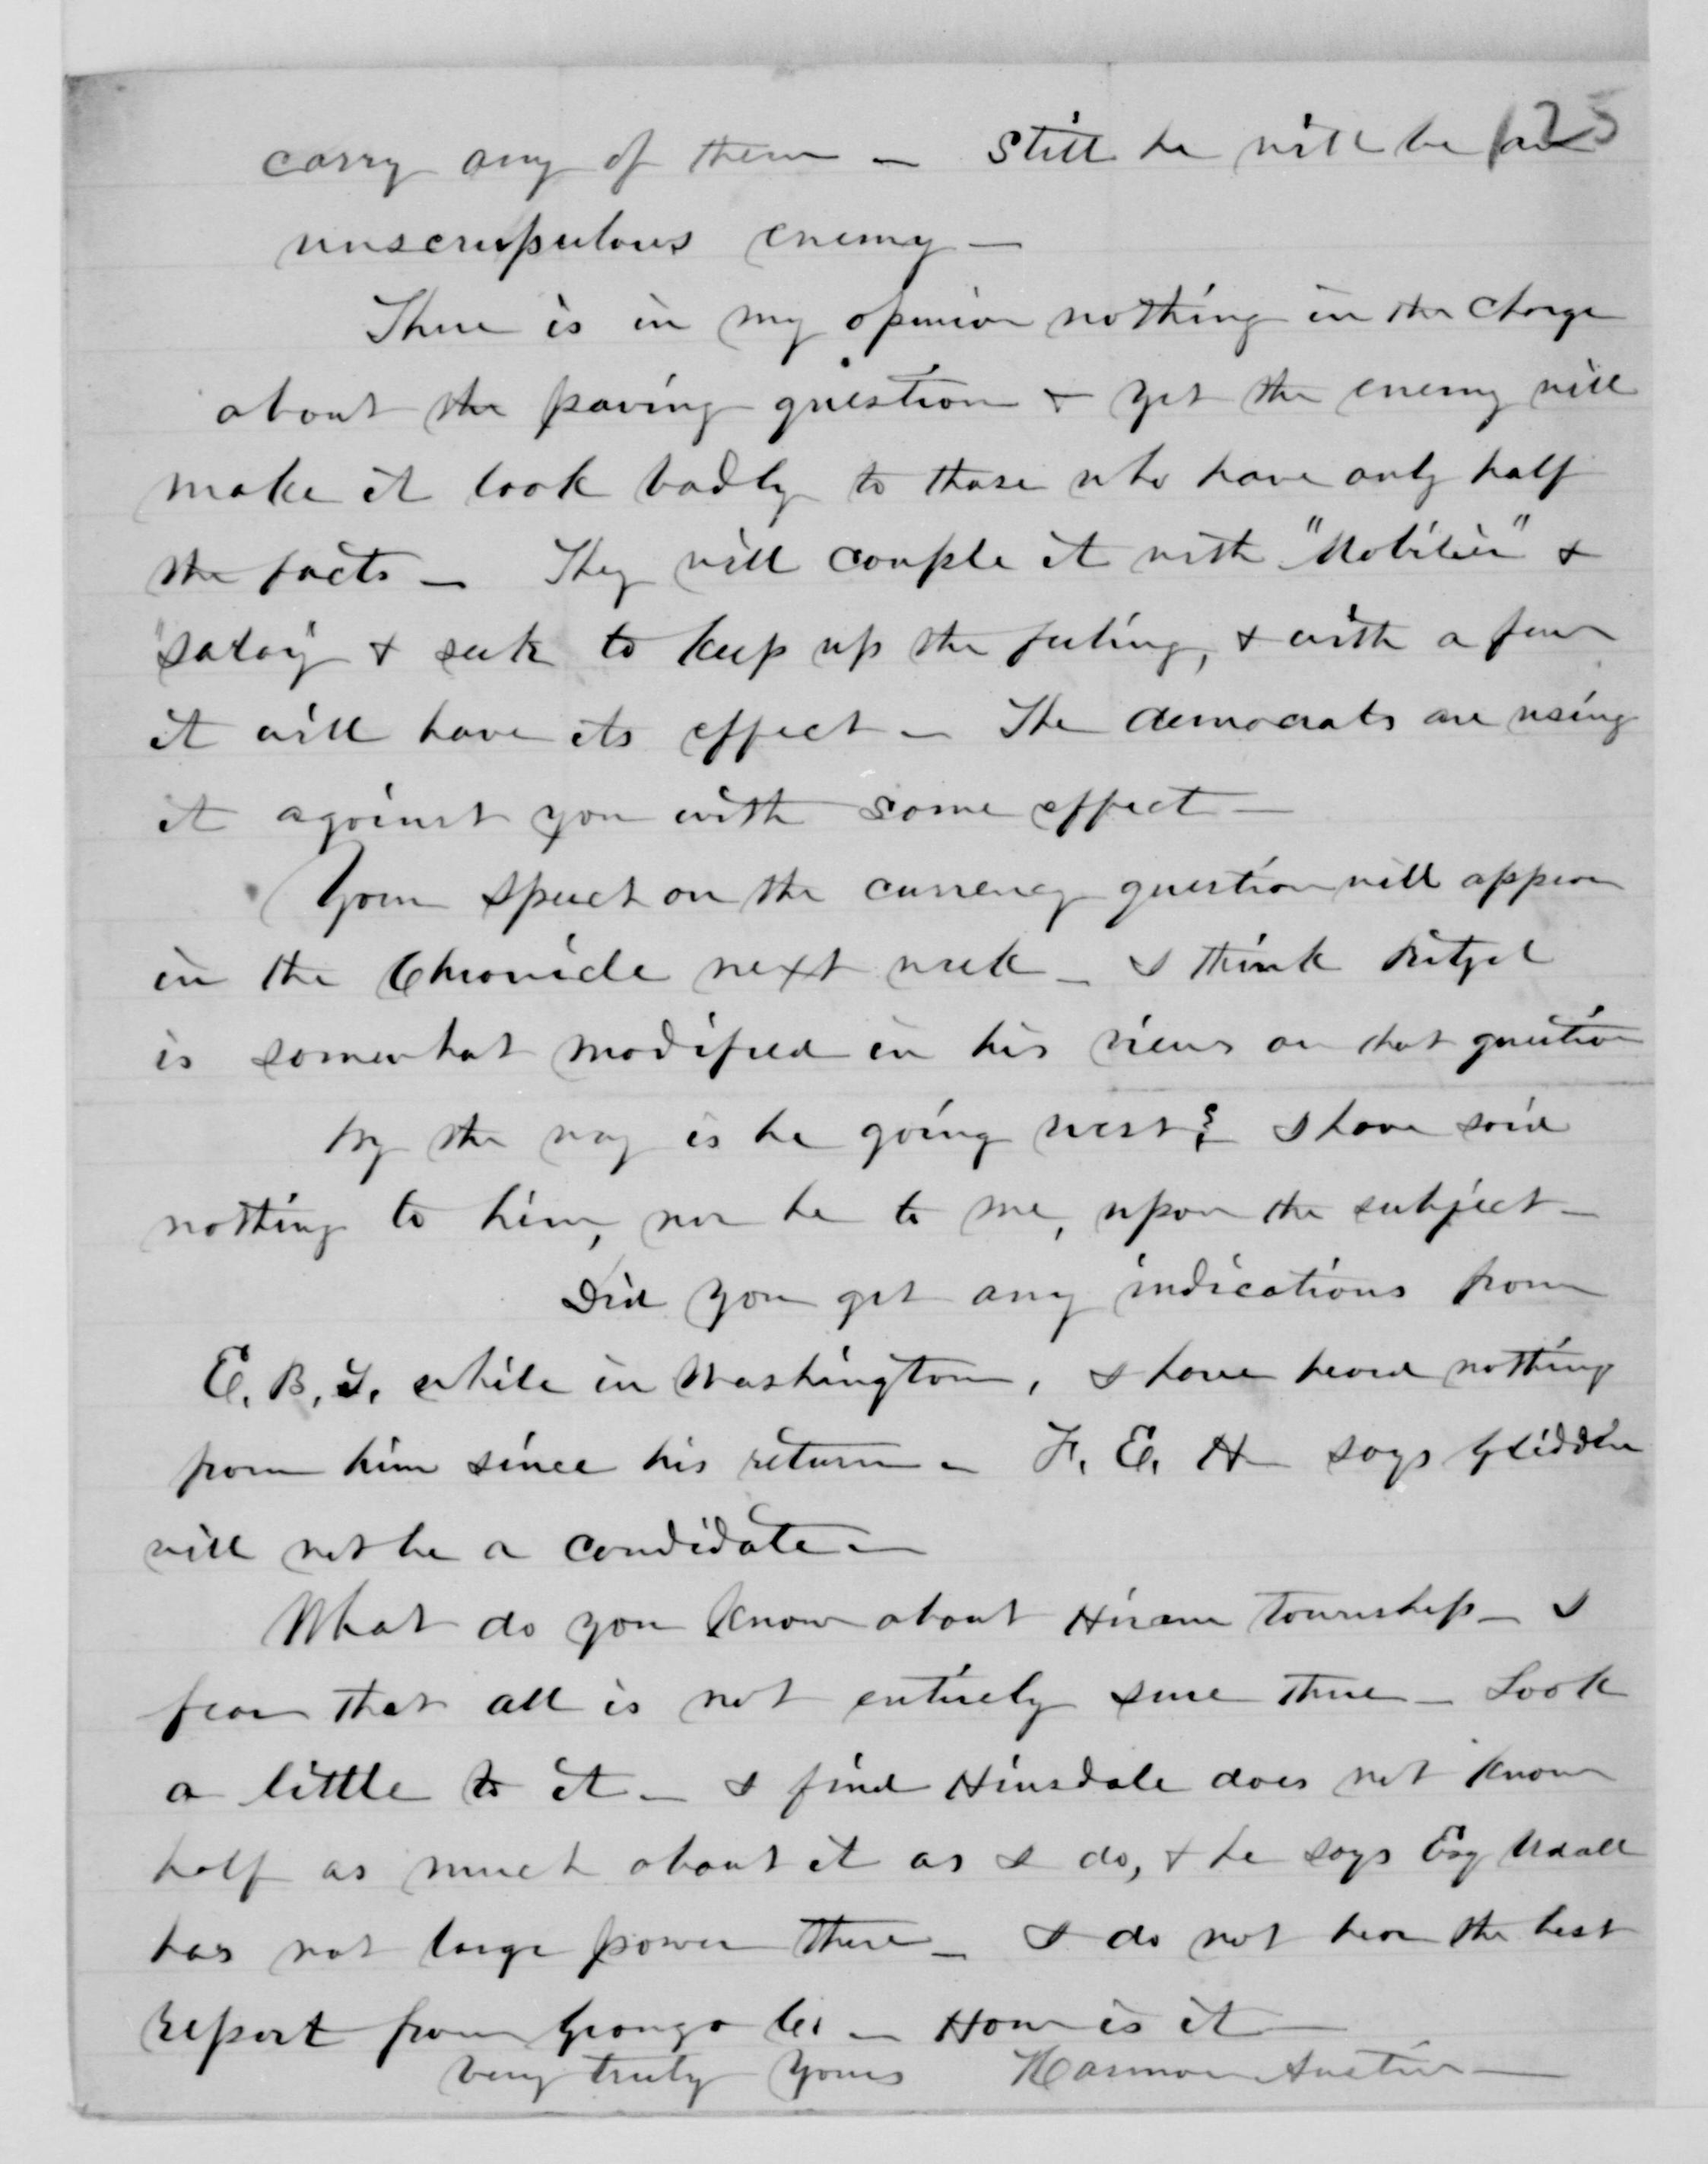 125
carry any of them – Still he will be an
unscrupulous enemy –
There is in my opinion nothing in the charge
about the paving question & yet the enemy will
make it look badly to those who have only half
the facts – They will couple it with "Mobilier" &
"salary" & seek to keep up the feeling, & with a few
it will have its effect – The democrats are using
it against you with some effect –
Your speech on the currency question will appear
in the Chronicle next week – I think Ritzel
is somewhat modified in his views on that question
by the way is he going west? I have said
nothing to him, nor he to me, upon the subject –
Did you get any indications from
E. B. T. while in Washington, I have heard nothing
from him since his return – F. E. H – says Glidden
will not be a candidate –
What do you know about Hiram township – I
fear that all is not entirely sure there – Look
a little to it – I find Hinsdale does not know
half as much about it as I do, & he says Esq Udall
has not large power there – I do not hear the best
report from Geauga Co – How is it –
Very truly Yours Harmon Austin –